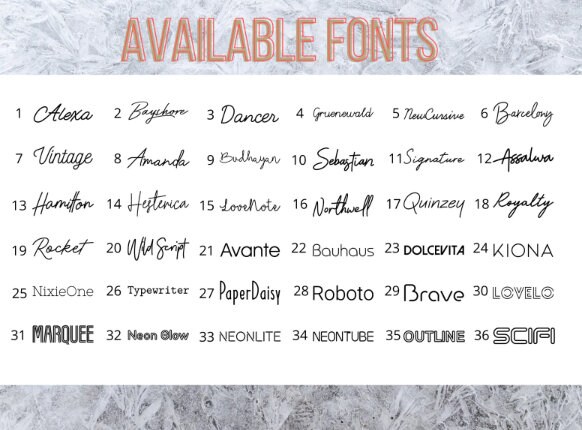 AVAILABLE FONTS
1 Alexa 2 Bayshore 3 Dancer 4 Gruenewald 5 NeuCursive 6 Barcelony
7 Vintage 8 Amanda 9 Budhayan 10 Sebastian 11 Signature 12 Assalwa
13 Hamilton 14 Hesterica 15 LoveNote 16 Northwell 17 Quinzey 18 Royalty
19 Rocket 20 Wild Script 21 Avante 22 Bauhaus 23 DOLCEVITA 24 KIONA
25 NixieOne 26 Typewriter 27 PaperDaisy 28 Roboto 29 Brave 30 LOVELO
31 MARQUEE 32 Neon Glow 33 NEONLITE 34 NEONTUBE 35 OUTLINE 36 SCIFI